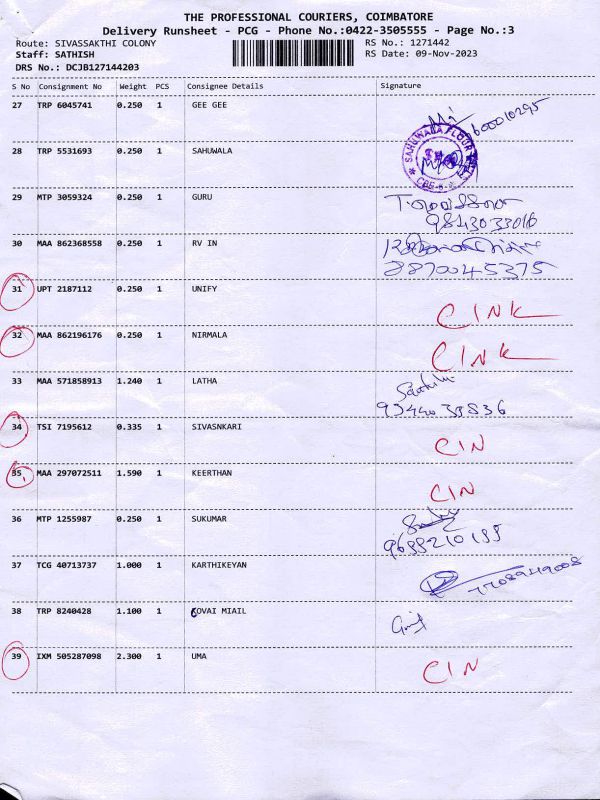 THE PROFESSIONAL COURIERS, COIMBATORE
Delivery Runsheet - PCG - Phone No.:0422-3505555 - Page No.:3
Route: SIVASSAKTHI COLONY RS No.: 1271442
Staff: SATHISH RS Date: 09-Nov-2023
DRS No.: DCJB127144203
S No Consignment No Weight PCS Consignee Details Signature
27 TRP 6045741 0.250 1 GEE GEE
28 TRP 5531693 0.250 1 SAHUWALA
SAHUWALA FLOUR
29 MTP 3059324 0.250 1 GURU
9843033016
30 MAA 862368558 0.250 1 RV IN
8870045375
31 UPT 2187112 0.250 1 UNIFY CINK
32 MAA 862196176 0.250 1 NIRMALA CINK
33 MAA 571858913 1.240 1 LATHA
34 TSI 7195612 0.335 1 SIVASNKARI CIN
35 MAA 297072511 1.590 1 KEERTHAN CIN
36 MTP 1255987 0.250 1 SUKUMAR
37 TCG 40713737 1.000 1 KARTHIKEYAN
38 TRP 8240428 1.100 1 COVAI MIAIL
39 IXM 505287098 2.300 1 UMA CIN